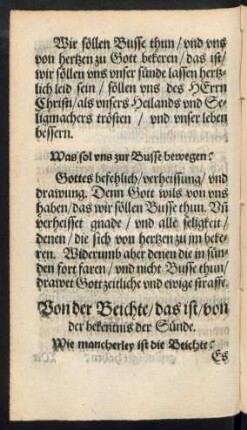 Wir söllen Busse thun / vnd vns
von hertzen zu Gott bekeren / das ist /
wir söllen vns vnser sünde lassen hertz-
lich leid sein / söllen vns des HErrn
Christi / als vnsers Heilands vnd Se-
ligmachers trösten / vnd vnser leben
bessern.
Was sol vns zur Busse bewegen?
Gottes befehlich / verheissung / vnd
drawung. Denn Gott wils von vns
haben / das wir söllen Busse thun. Vñ
verheisset gnade / vnd alle seligkeit /
denen / die sich von hertzen zu jm beke-
ren. Widerumb aber denen die in sün-
den fort faren / vnd nicht Busse thun /
drawet Gott zeitliche vnd ewige straffe.
Von der Beichte / das ist / von
der bekentnis der Sünde.
Wie mancherley ist die Beichte?
Es